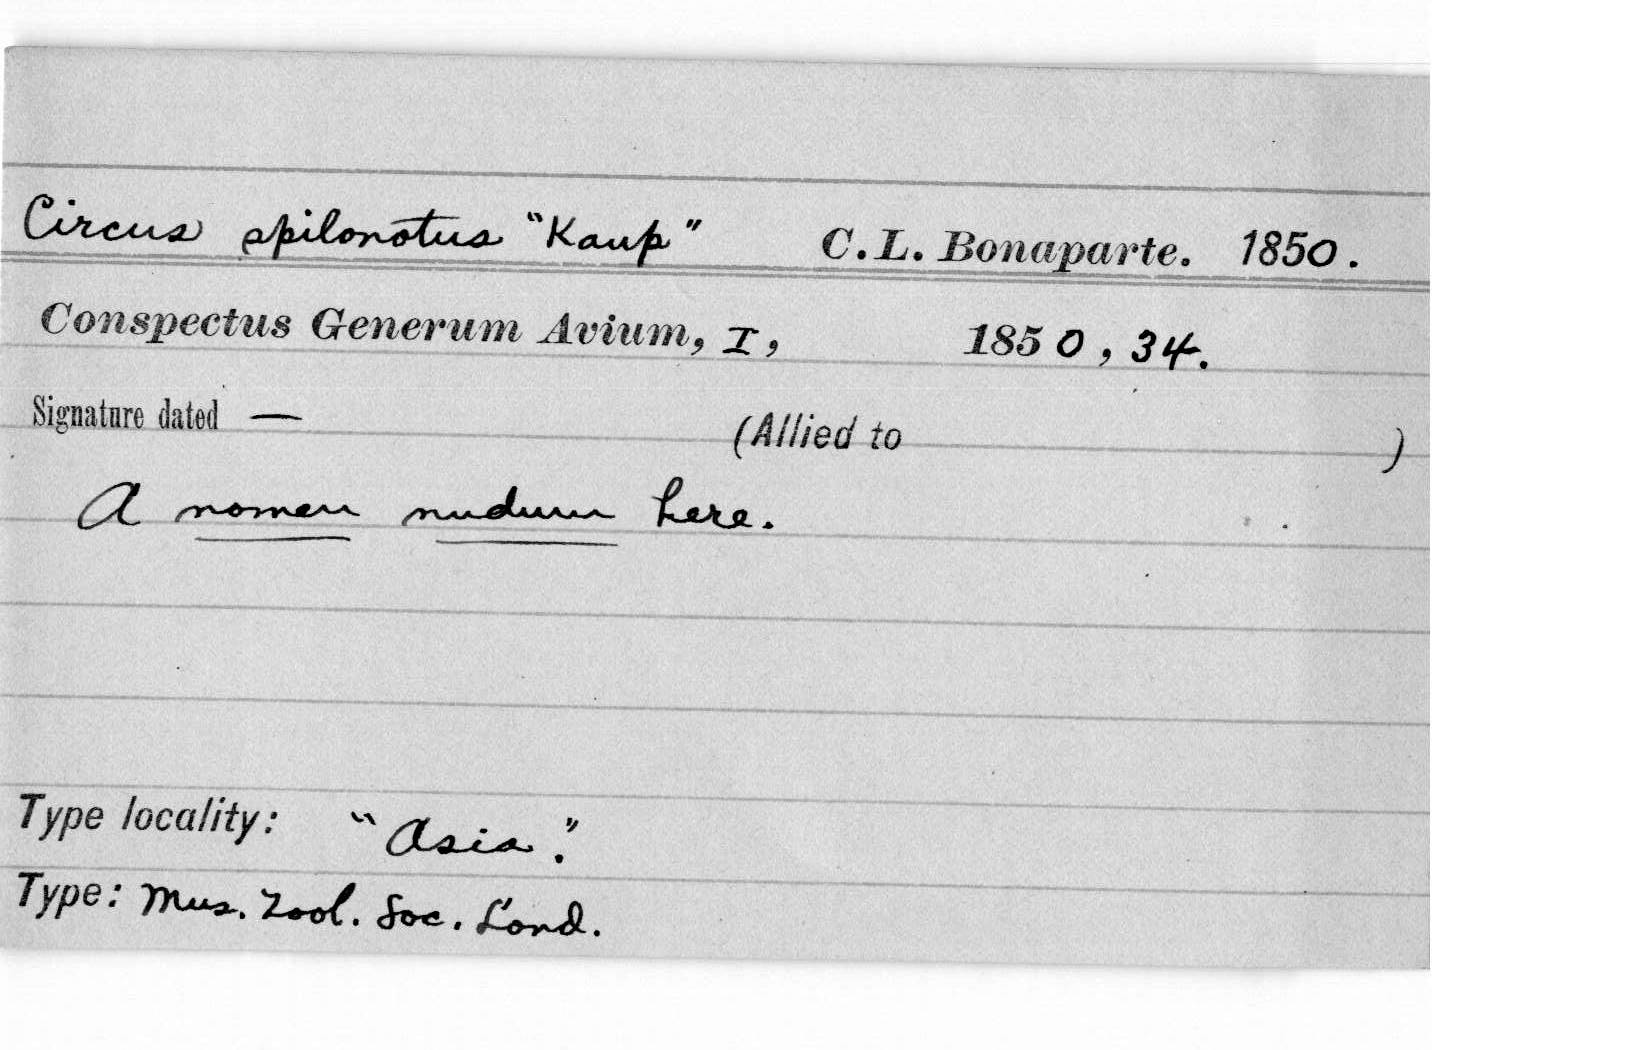 Circus spilonotus "Kaup" C.L. Bonaparte. 1850.
Conspectus Generum Avium, I, 1850, 34.
Signature dated — (Allied to )
A nomen nudum here.
Type locality: "Asia."
Type: Mus. Zool. Soc. Lond.